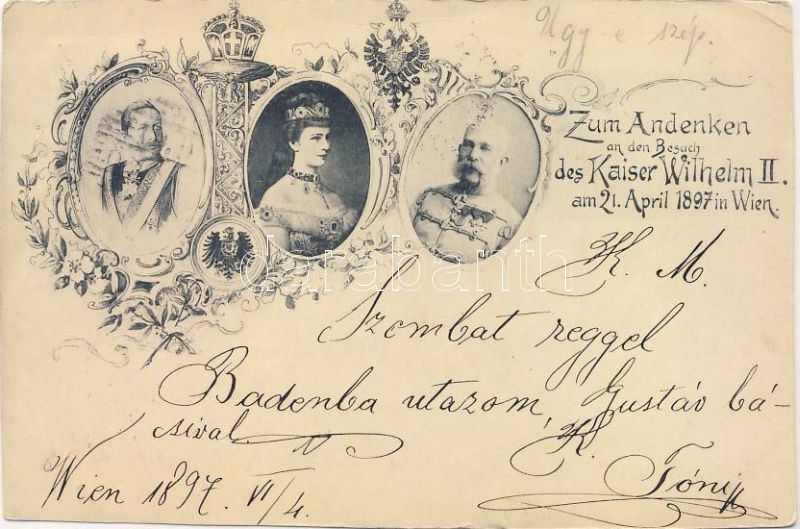 Úgy-e szép.
Zum Andenken
an den Besuch
des Kaiser Wilhelm II.
am 21. April 1897 in Wien.
K. M.
Szombat reggel
Badenba utazom, Gustáv bá-
csival.
K.
Tóni
Wien 1897. VI/4.
darabanth